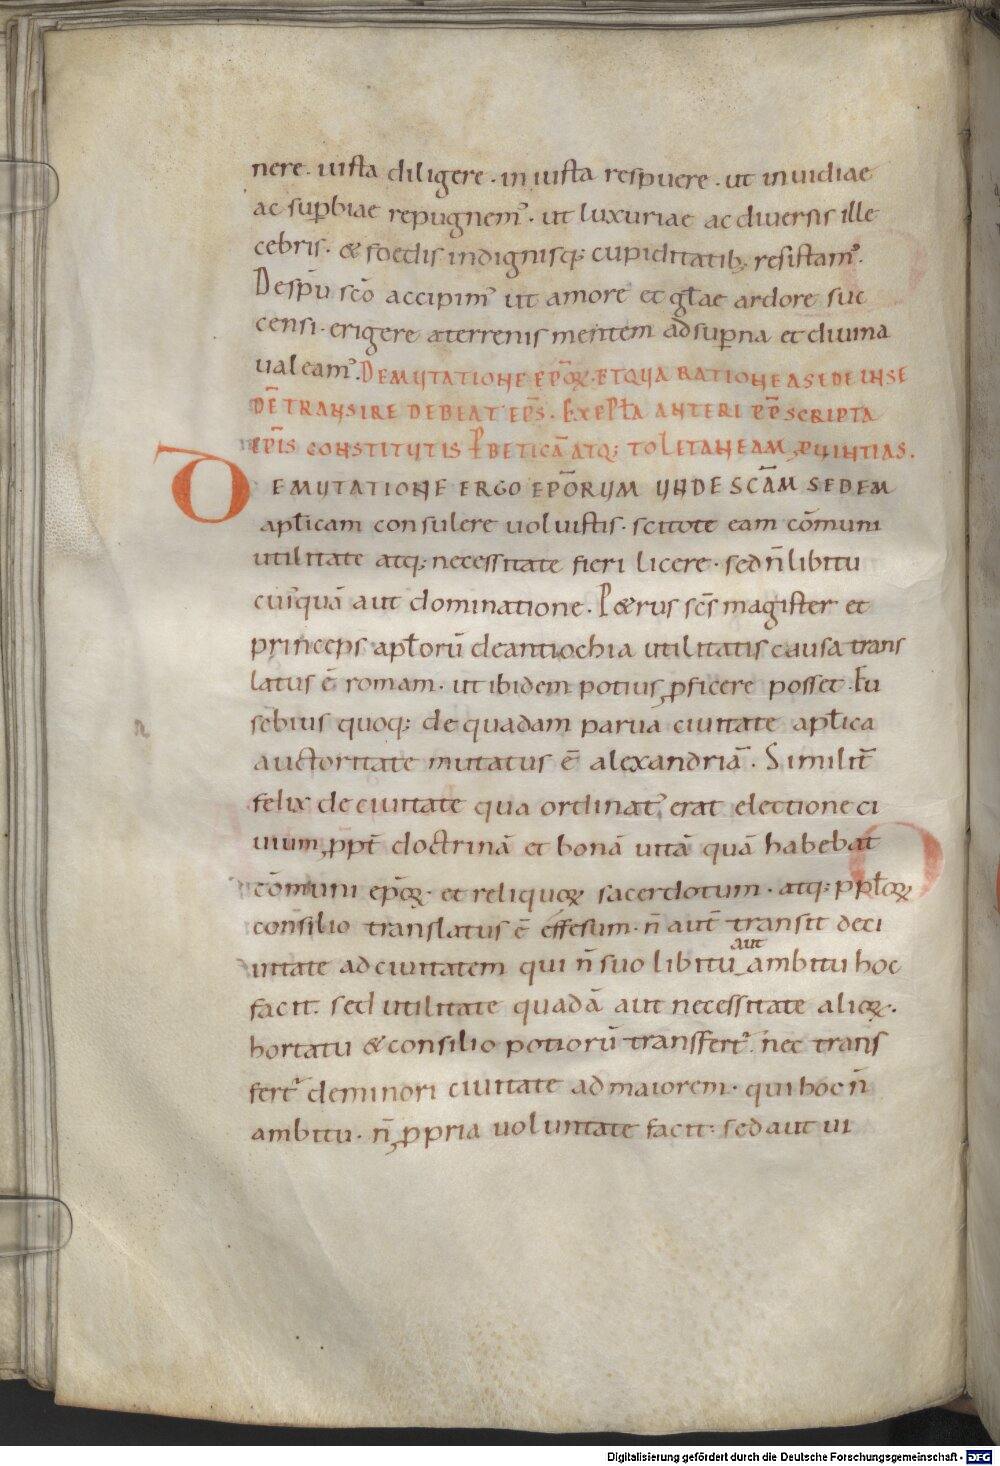 nere. iusta diligere. iniusta respuere. ut inuidiae
ac sup̄biae repugnem᾽. ut luxuriae ac diuersis ille
cebris. & foedis indignisq; cupiditatib; resistam᾽.
Despū sc̄o accipim᾽ ut amore et gl̄ae ardore suc
censi. erigere aterrenis mentem adsup̄na et diuina
ualeam᾽. DEMUTATIONE EP̄OꝜ. ETQUA RATIONE ASEDE INSE
DĒ TRANSIRE DEBEAT EP̄S. EXEPL̄A ANTERI PP̄ SCRIPTA
EP̄IS CONSTITUTIS P̄ BETICĀ ATQ; TOLETANEAM ꝓUINTIAS.
DEMUTATIONE ERGO EP̄ORUM UNDE SCĀM SEDEM
apl̄icam consulere uoluistis. scitote eam cōmuni
utilitate atq; necessitate fieri licere. sed n̄ libitu
cui᾽quā aut dominatione. P&rus sc̄s magister et
princeps apl̄orū deantiochia utilitatis causa trans
latus ē romam. ut ibidem potius ꝓficere posset. Eu
sebius quoq; de quadam parua ciuitate apl̄ica
auctoritate mutatus ē alexandriā. Similit̄
felix de ciuitate qua ordinat᾽ erat electione ci
uium, ꝓpt̄ doctrinā et bonā uitā quā habebat
cōmuni ep̄oꝝ. et reliquoꝝ sacerdotum. atq; ppl̄oꝝ
consilio translatus ē effesum. n̄ aut̄ transit deci
uitate adciuitatem qui n̄ suo libitu aut ambitu hoc
facit. sed utilitate quadā aut necessitate alioꝝ.
hortatu & consilio potiorū transfert᾽. nec trans
fert᾽ deminori ciuitate ad maiorem. qui hoc n̄
ambitu. n̄ ꝓpria uoluntate facit. sed aut ui
Digitalisierung gefördert durch die Deutsche Forschungsgemeinschaft - DFG